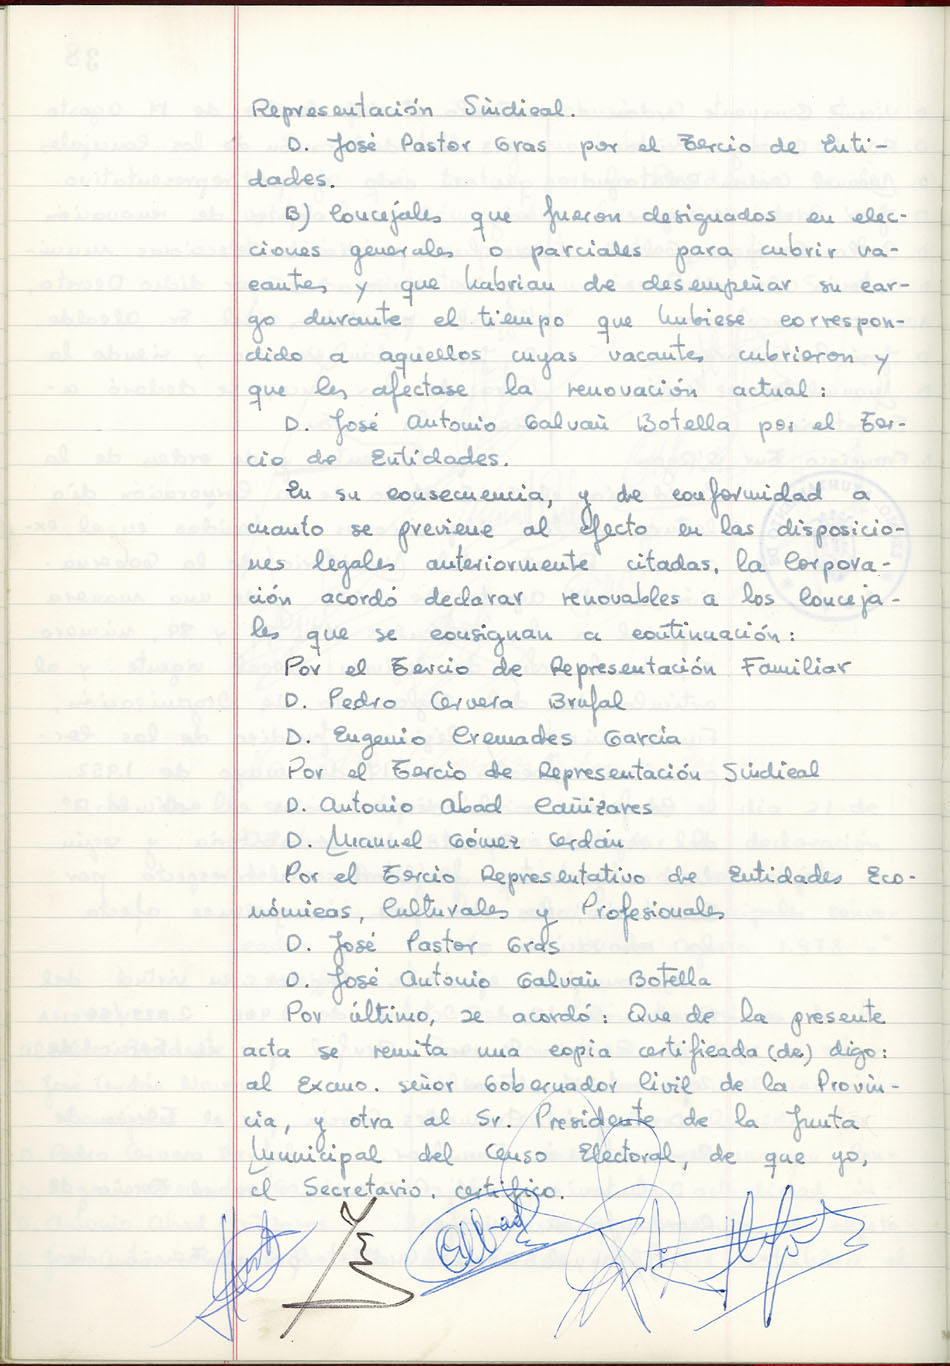 Representación Sindical.
D. José Pastor Gras por el Tercio de Enti-
dades.
B) Concejales que fueron designados en elec-
ciones generales o parciales para cubrir va-
cantes y que habrian de desempeñar su car-
go durante el tiempo que hubiese correspon-
dido a aquellos cuyas vacantes cubrieron y
que les afectase la renovación actual:
D. José Antonio Galvañ Botella por el Ter-
cio de Entidades.
En su consecuencia, y de conformidad a
cuanto se previene al efecto en las disposicio-
nes legales anteriormente citadas, la Corpora-
ción acordó declarar renovables a los Conceja-
les que se consignan a continuación:
Por el Tercio de Representación Familiar
D. Pedro Cervera Brufal
D. Eugenio Cremades García
Por el Tercio de Representación Sindical
D. Antonio Abad Cañizares
D. Manuel Gómez Cerdán
Por el Tercio Representativo de Entidades Eco-
nómicas, Culturales y Profesionales
D. José Pastor Gras
D. José Antonio Galvañ Botella
Por último, se acordó: Que de la presente
acta se remita una copia certificada (de) digo:
al Excmo. señor Gobernador Civil de la Provin-
cia, y otra al Sr. Presidente de la Junta
Municipal del Censo Electoral, de que yo,
el Secretario, certifico.
Abad